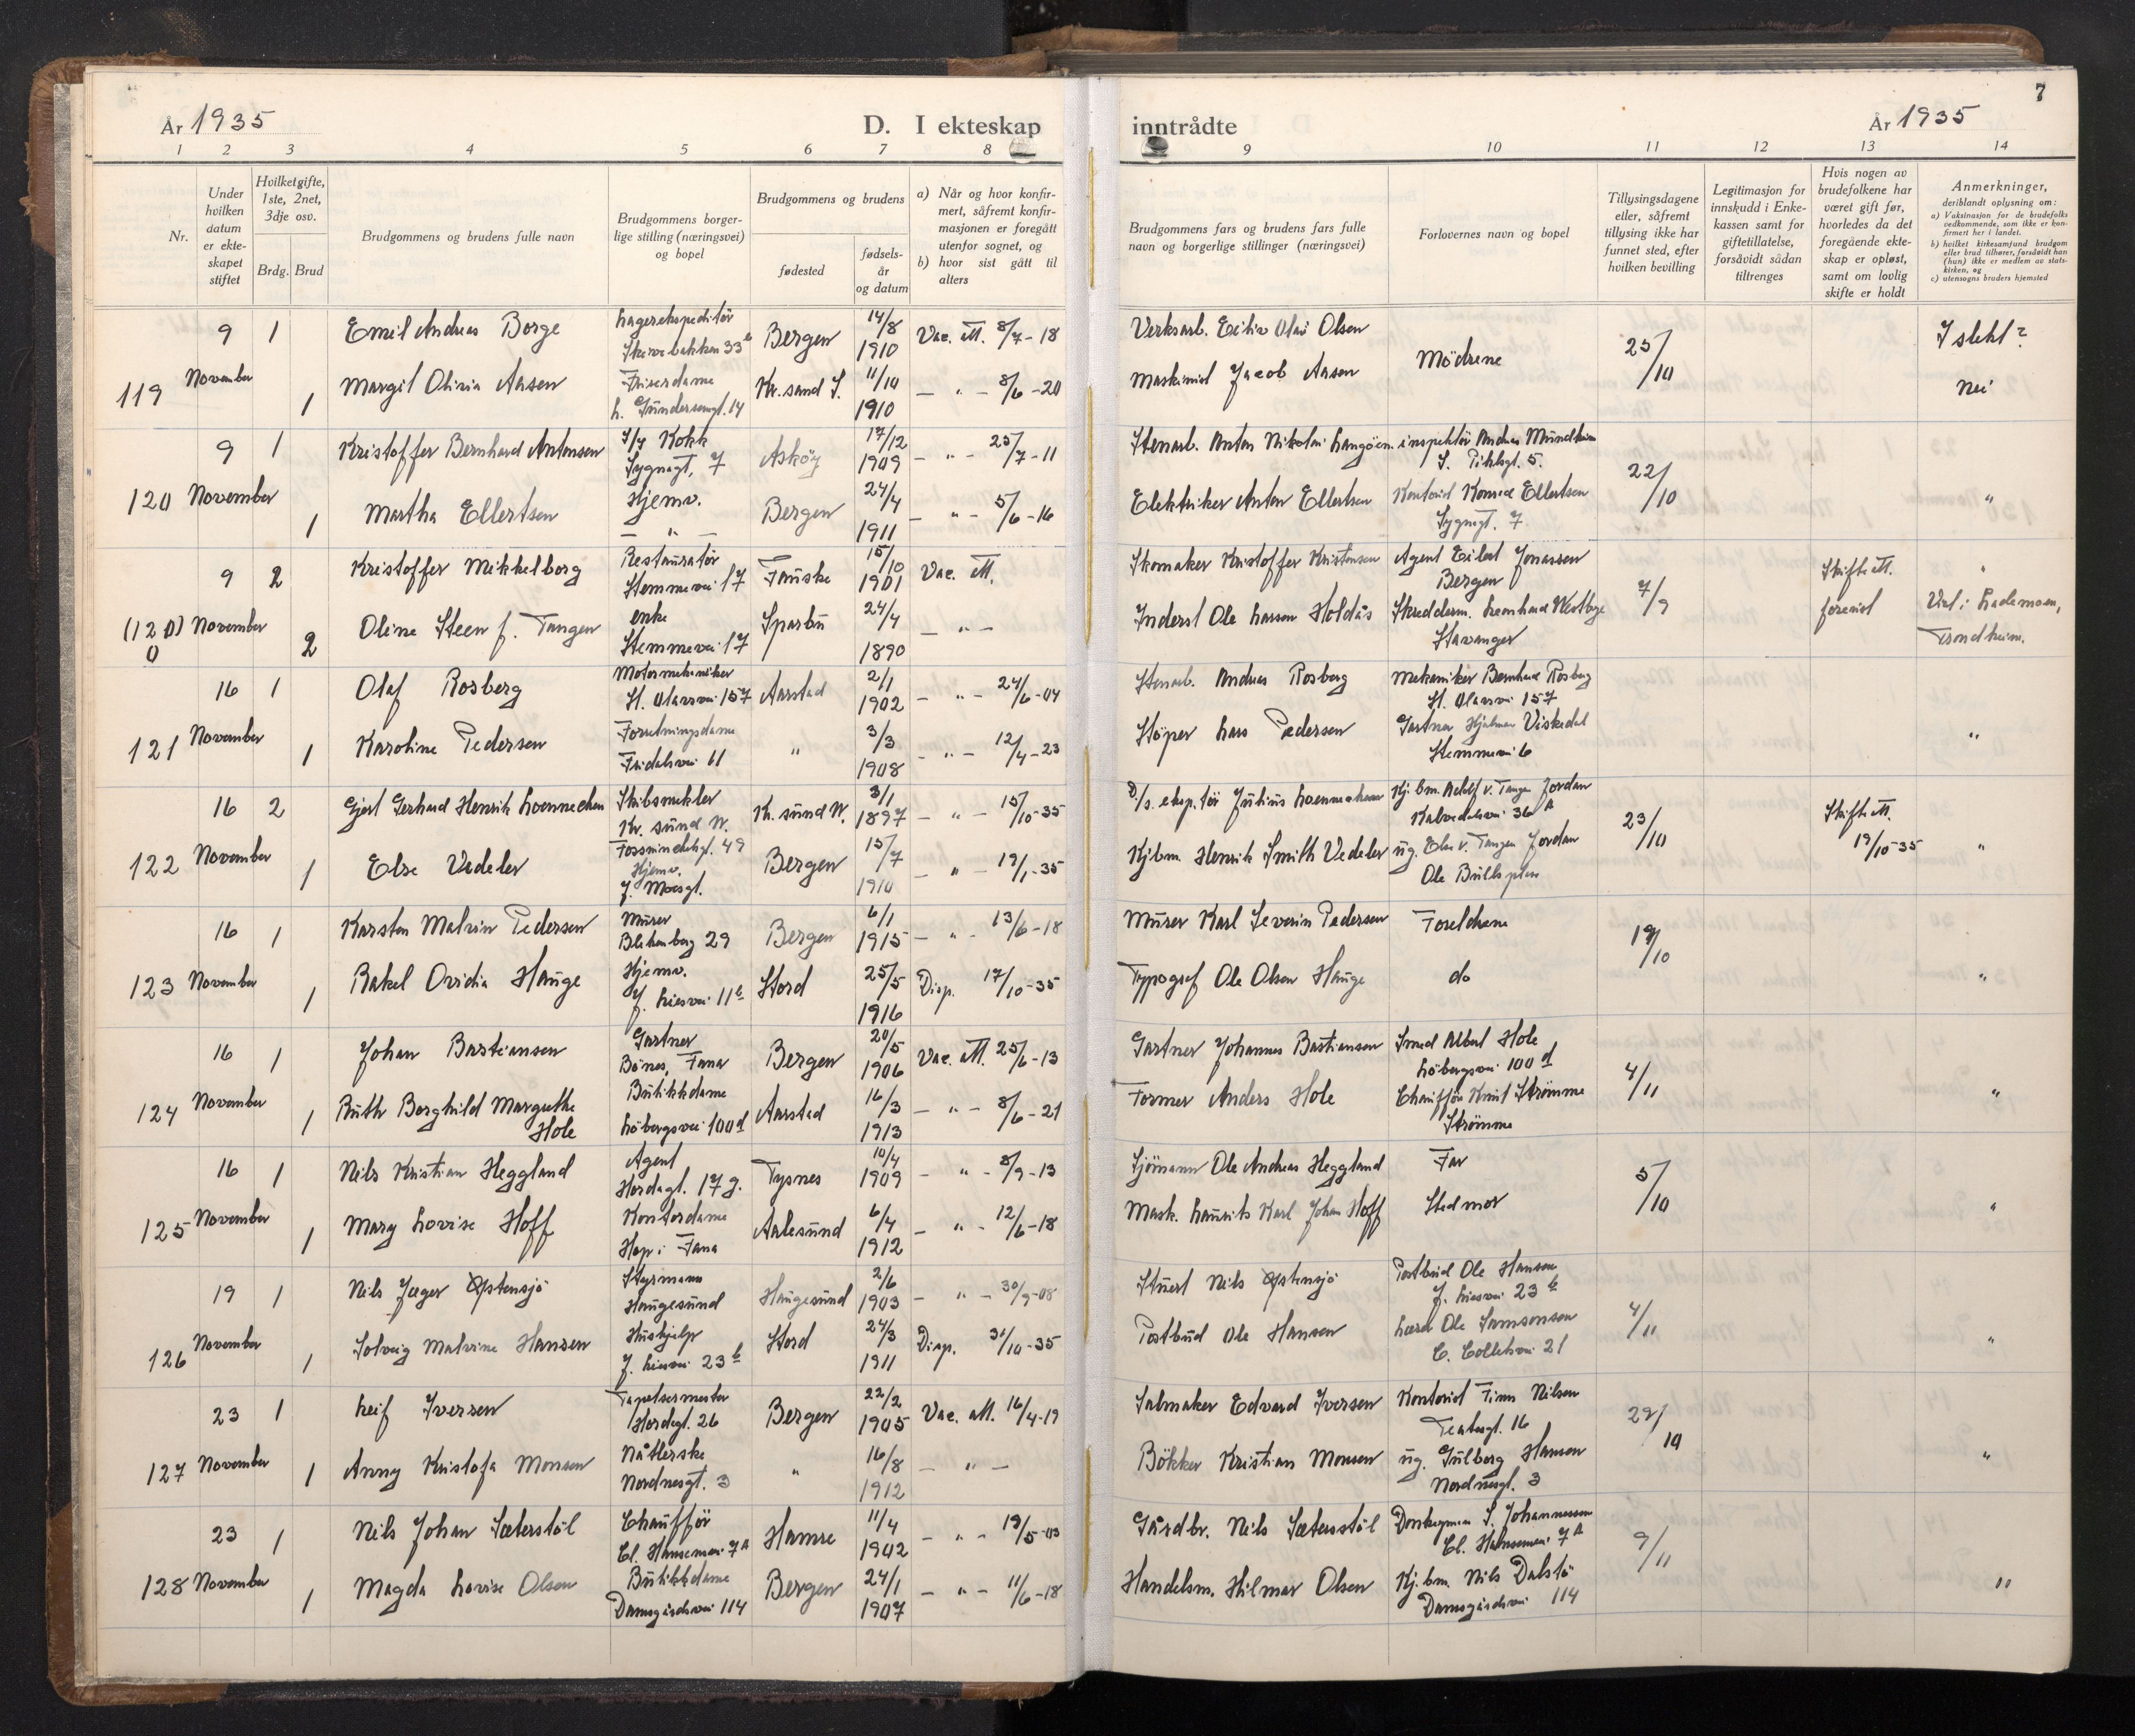 År 1935
D. I ekteskap
inntrådte
År 1935
7
1 2 3 4 5 6 7 8 9 10 11 12 13 14
Nr.
Under hvilken datum er ekteskapet stiftet
Hvilket gifte, 1ste, 2net, 3dje osv.
Brdg. Brud
Brudgommens og brudens fulle navn
Brudgommens borgerlige stilling (næringsvei) og bopel
Brudgommens og brudens
fødested
fødselsår og datum
a) Når og hvor konfirmert, såfremt konfirmasjonen er foregått utenfor sognet, og
b) hvor sist gått til alters
Brudgommens fars og brudens fars fulle navn og borgerlige stillinger (næringsvei)
Forlovernes navn og bopel
Tillysingsdagene eller, såfremt tillysing ikke har funnet sted, efter hvilken bevilling
Legitimasjon for innskudd i Enkekassen samt for giftetillatelse, forsåvidt sådan tiltrenges
Hvis nogen av brudefolkene har været gift før, hvorledes da det foregående ekteskap er opløst, samt om lovlig skifte er holdt
Anmerkninger, deriblandt oplysning om:
a) Vaksinasjon for de brudefolks vedkommende, som ikke er konfirmert her i landet.
b) hvilket kirkesamfund brudgom eller brud tilhører, forsåvidt han (hun) ikke er medlem av statskirken, og
c) utensogns bruders hjemsted
9 1 Emil Andreas Borge Lagerekspeditör Skivebakken 33b Bergen 14/8 1910 Vac. att. 8/7-18 Verksarb. Olai Olsen Mödrene 25/10 I slekt?
119 November 1 Margit Olivia Aasen Frisérdame L. Gundersensgt. 14 Kr.sand S. 11/10 1910 — " — 8/6-20 Maskinist Jacob Aasen Nei
9 1 Kristoffer Bernhard Antonsen S/y Kokk Lygnegt. 7 Asköy 17/12 1909 — " — 25/7-11 Stenarb. Anton Nikolai Langöen inspektör Andreas Mundheim S. Pihlsgt. 5. 22/10
120 November 1 Martha Ellertsen Hjemv. — " — Bergen 24/4 1911 — " — 5/6-16 Elektriker Anton Ellertsen Kontorist Konrad Ellertsen Lygnegt. 7 "
9 2 Kristoffer Mikkelborg Restauratör Stemmevei 17 Fauske 15/10 1901 Vac. att. Skomaker Kristoffer Kristensen Agent Eilert Jonassen Bergen 7/9 Skifteatt. forevist "
(120) November 2 Oline Steen f. Tangen enke Stemmevei 17 Sparbu 24/4 1890 — " — Inderst Ole Larsen Holdås Skredderm. Leonhard Westbye Stavanger Viet i Lademoen, Trondheim.
0
16 1 Olaf Rosberg Motormekaniker St. Olavsvei 157 Aarstad 2/1 1902 — " — 24/6-04 Stenarb. Andreas Rosberg Mekaniker Bernhard Rosberg St. Olavsvei 157
121 November 1 Karoline Pedersen Forretningsdame Fridalsvei 61 " 3/3 1908 — " — 12/4-23 Støper Lars Pedersen Gartner Hjalmar Viskedal Stemmevei 6 "
16 2 Gjert Gerhard Henrik Loennechen Skibsmekler Kr. sund N. Fossmindeligt. 49 K. sund N. 3/1 1897 — " — 15/10-35 D/s. eksp.tör Julius Loennechen Kj.bm. Adolf v. Tangen Jordan Kalvedalsvei 36A 23/10 Skifteatt. 19/10-35
122 November 1 Else Vedeler Hjemv. J. Moesgt. Bergen 15/7 1910 — " — 19/1-35 Kjbm. Henrik Smith Vedeler ug. Else v. Tangen Jordan Ole Bulls plass "
16 1 Karsten Malvin Pedersen Murer Blekenberg 29 Bergen 6/1 1915 — " — 13/6-18 Murer Karl Severin Pedersen Foreldrene 19/10
123 November 1 Rakel Ovidia Hauge Hjemv. J. Liesvei 11b Stord 25/5 1916 Disp. 17/10-35 Typograf Ole Olsen Hauge do "
16 1 Johan Bastiansen Gartner Bönes, Fana Bergen 20/5 1906 Vac. att. 25/6-13 Gartner Johannes Bastiansen Smed Albert Hole Löbergsvei 100d 4/11
124 November 1 Ruth Borghild Margrethe Hole Butikkdame Löbergsvei 100d Aarstad 16/3 1913 — " — 8/6-21 Former Anders Hole Chauffför Knut Strömme Strömme "
16 1 Nils Kristian Heggland Agent Hordagt. 17 g. Tysnes 10/4 1909 — " — 8/9-13 Sjömann Ole Andreas Heggland Far 5/10
125 November 1 Mary Lovise Hoff Kontordame Hop i Fana Aalesund 6/4 1912 — " — 12/6-18 Mask. Laurits Karl Johan Hoff Stedmor "
19 1 Nils Jæger Østensjö Styrmann Haugesund Haugesund 2/6 1903 — " — 30/9-08 Stuert Nils Østensjö Postbud Ole Hansen J. Liesvei 23b 4/11
126 November 1 Solveig Malvine Hansen Huskjelp J. Liesvei 23b Stord 24/3 1911 Disp. 31/10-35 Postbud Ole Hansen Lærer Ole Samsonsen C. Collettsvei 21 "
23 1 Leif Iversen Tapetsermester Hordagt. 26 Bergen 22/2 1905 Vac. att. 16/4-19 Salmaker Edvard Iversen Kontorist Finn Nilsen Teatergt. 16 29/10
127 November 1 Anny Kristofa Monsen Nåtlerske Nordnesgt. 3 " 16/8 1912 — " — Bökker Kristian Monsen ug. Gulborg Hansen Nordnesgt. 3 "
23 1 Nils Johan Sæterstöl Chaufför Cl. Hansensvei 7A Hamre 11/4 1902 — " — 19/5-03 Gårdbr. Nils Sætersstöl Donkeyman S. Johannessen Cl. Hansensvei 7A 9/11
128 November 1 Magda Lovise Olsen Butikkdame Damsgårdsvei 114 Bergen 24/1 1907 — " — 11/6-18 Handelsm. Hilmar Olsen Kj.bm. Nils Dalstö Damsgårdsvei 114 "